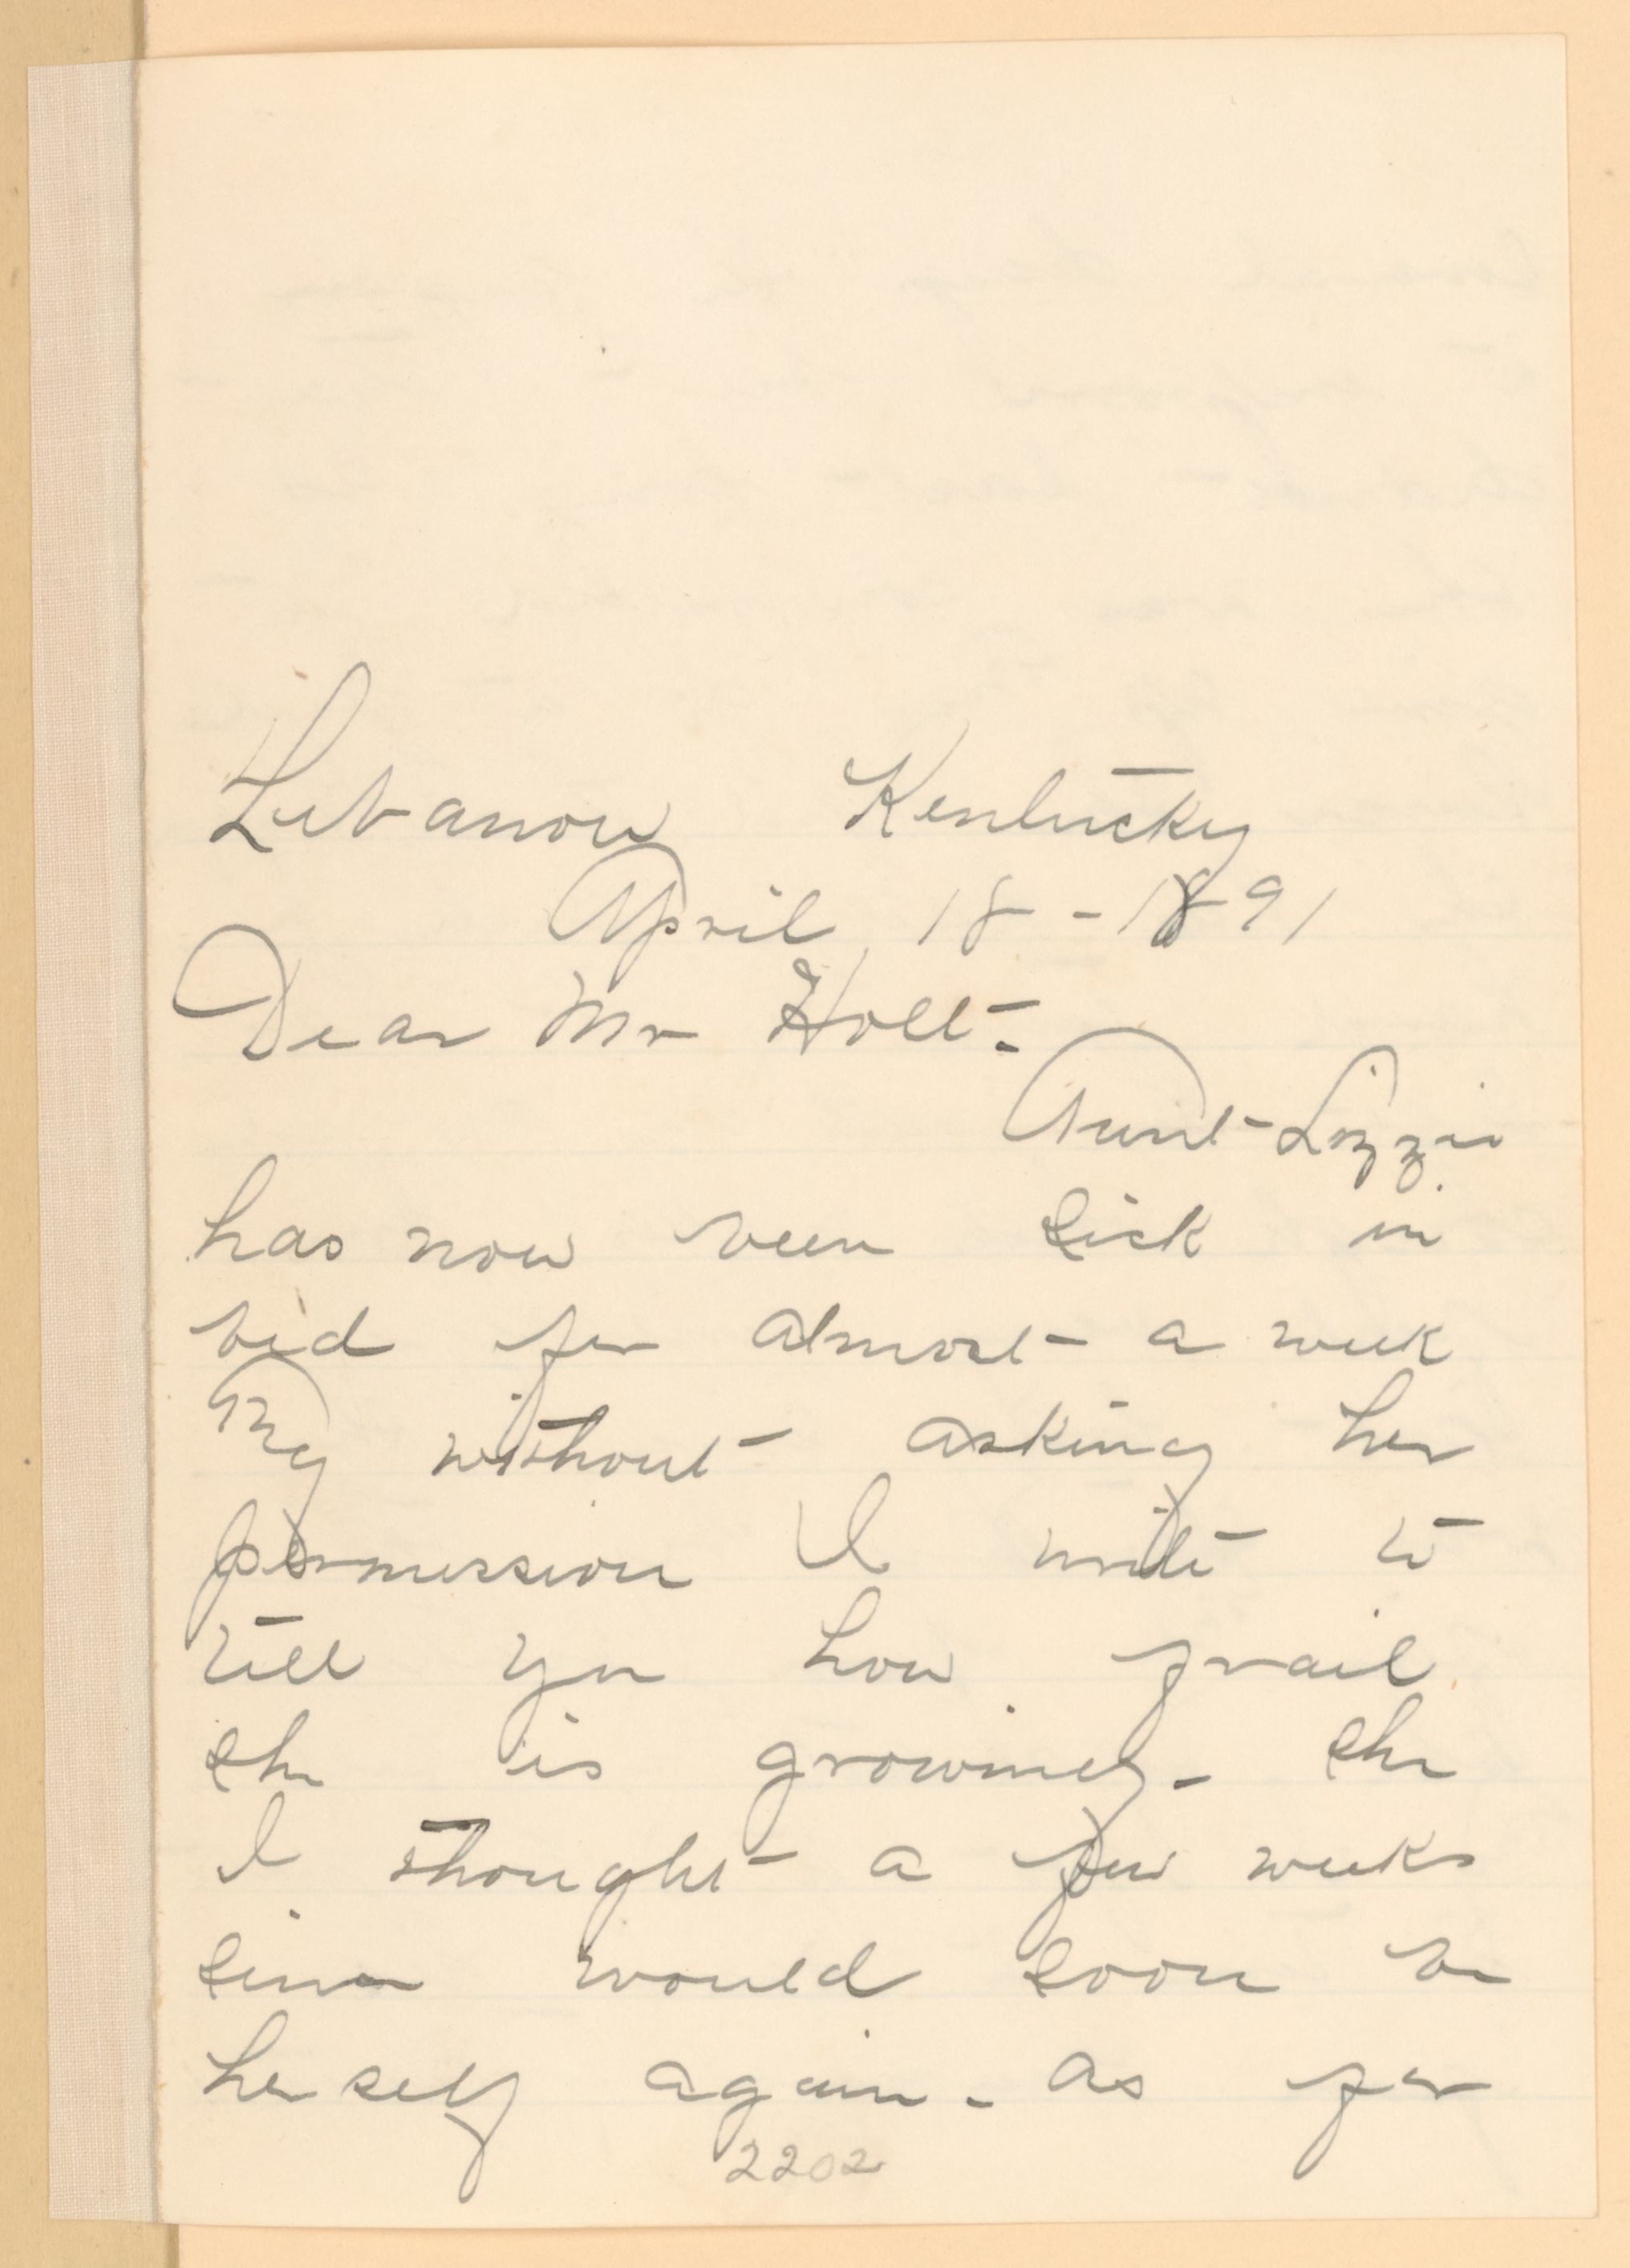 Lebanon Kentucky
April 18 - 1891
Dear Mr Holt -
Aunt Lizzie
has now been sick in
bed for almost a week
without asking her
permission I write to
tell you how frail
she is growing - she
I thought a few weeks
since would soon be
herself again - as for
2202